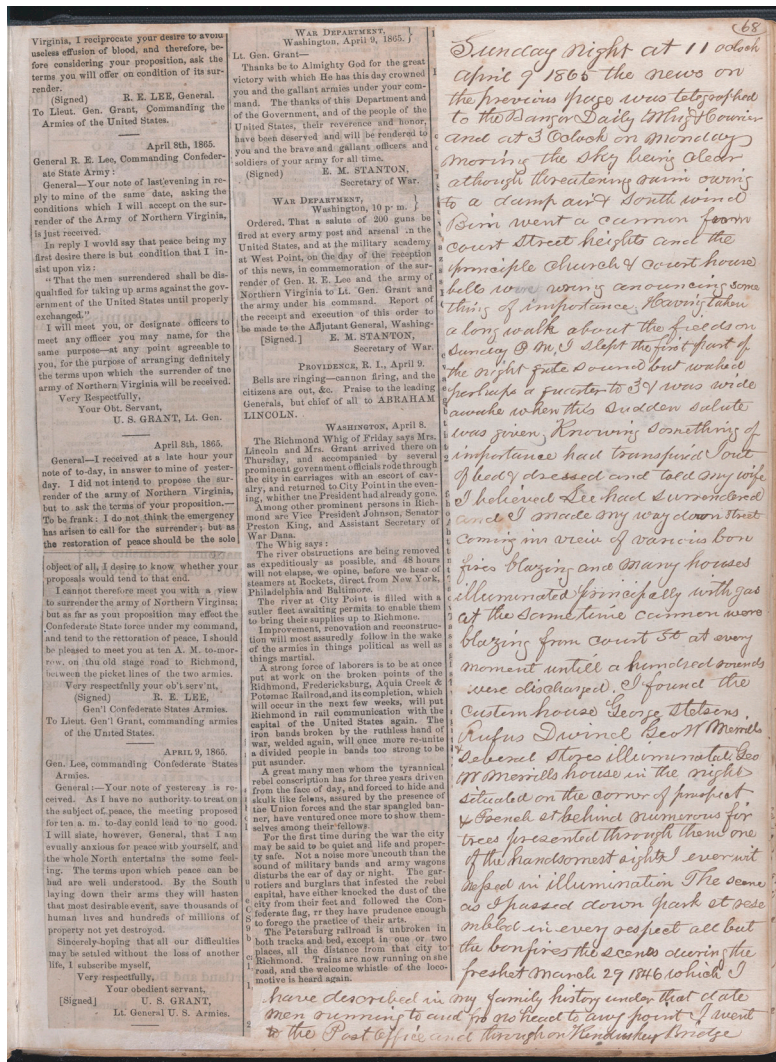 Virginia, I reciprocate your desire to avoid
useless effusion of blood, and therefore, be-
fore considering your proposition, ask the
terms you will offer on condition of its sur-
render.
(Signed) R. E. LEE, General.
To Lieut. Gen. Grant, Commanding the
Armies of the United States.
April 8th, 1865.
General R. E. Lee, Commanding Confeder-
ate State Army:
General—Your note of last evening in re-
ply to mine of the same date, asking the
conditions which I will accept on the sur-
render of the Army of Northern Virginia,
is just received.
In reply I would say that peace being my
first desire there is but condition that I in-
sist upon viz:
"That the men surrendered shall be dis-
qualified for taking up arms against the gov-
ernment of the United States until properly
exchanged."
I will meet you, or designate officers to
meet any officer you may name, for the
same purpose—at any point agreeable to
you, for the purpose of arranging definitely
the terms upon which the surrender of tne
army of Northern Virginia will be received.
Very Respectfully,
Your Obt. Servant,
U. S. GRANT, Lt. Gen.
April 8th, 1865.
General—I received at a late hour your
note of to-day, in answer to mine of yester-
day. I did not intend to propose the sur-
render of the army of Northern Virginia,
but to ask the terms of your proposition.—
To be frank: I do not think the emergency
has arisen to call for the surrender; but as
the restoration of peace should be the sole
object of all, I desire to know whether your
proposals would tend to that end.
I cannot therefore meet you with a view
to surrender the army of Northern Virginsa;
but as far as your proposition may effect the
Confederate State force under my command,
and tend to the rettoration of peace, I should
be pleased to meet you at ten A. M. to-mor-
row, on thu old stage road to Richmond,
between the picket lines of the two armies.
Very respectfully your ob't serv'nt,
(Signed) R. E. LEE,
Gen'l Confederate States Armies.
To Lieut. Gen'l Grant, commanding armies
of the United States.
APRIL 9, 1865.
Gen. Lee, commanding Confederate States
Armies.
General:—Your note of yestercay is re-
ceived. As I have no authority to treat on
the subject of peace, the meeting proposed
for ten a. m. to-day could lead to no good.
I will slate, however, General, that I am
evually anxious for peace with yourself, and
the whole North entertains the some feel-
ing. The terms upon which peace can be
had are well understood. By the South
laying down their arms they will hasten
that most desirable event, save thousands of
human lives and hundreds of millions of
property not yet destroyed.
Sincerely hoping that all our difficulties
may be settled without the loss of another
life, I subscribe myself,
Very respectfully,
Your obedient servant,
[Signed] U. S. GRANT,
Lt. General U. S. Armies.
WAR DEPARTMENT, }
Washington, April 9, 1865. }
Lt. Gen. Grant—
Thanks be to Almighty God for the great
victory with which He has this day crowned
you and the gallant armies under your com-
mand. The thanks of this Department and
of the Government, and of the people of the
United States, their reverence and honor,
have been deserved and will be rendered to
you and the brave and gallant officers and
soldiers of your army for all time.
(Signed) E. M. STANTON,
Secretary of War.
WAR DEPARTMENT, }
Washington, 10 p. m. }
Ordered. That a salute of 200 guns be
fired at every army post and arsenal in the
United States, and at the military academy
at West Point, on the day of the reception
of this news, in commemoration of the sur-
render of Gen. R. E. Lee and the army of
Northern Virginia to Lt. Gen. Grant and
the army under his command. Report of
the receipt and execution of this order to
be made to the Adjutant General, Washing-
[Signed.] E. M. STANTON,
Secretary of War.
PROVIDENCE, R. I., April 9.
Bells are ringing—cannon firing, and the
citizens are out, &c. Praise to the leading
Generals, but chief of all to ABRAHAM
LINCOLN.
WASHINGTON, April 8.
The Richmond Whig of Friday says Mrs.
Lincoln and Mrs. Grant arrived there on
Thursday, and accompanied by several
prominent government officials rode through
the city in carriages with an escort of cav-
alry, and returned to City Point in the even-
ing, whither the President had already gone.
Among other prominent persons in Rich-
mond are Vice President Johnson, Senator
Preston King, and Assistant Secretary of
War Dana.
The Whig says:
The river obstructions are being removed
as expeditiously as possible, and 48 hours
will not elapse, we opine, before we hear of
steamers at Rockets, direct from New York,
Philadelphia and Baltimore.
The river at City Point is filled with a
sutler fleet awaiting permits to enable them
to bring their supplies up to Richmond.
Improvement, renovation and reconstruc-
tion will most assuredly follow in the wake
of the armies in things political as well as
things martial.
A strong force of laborers is to be at once
put at work on the broken points of the
Ridhmond, Fredericksburg, Aquia Creek &
Potamac Railroad, and its completion, which
will occur in the next few weeks, will put
Richmond in rail communication with the
capital of the United States again. The
iron bands broken by the ruthless hand of
war, welded again, will once more re-unite
a divided people in bands too strong to be
put asunder.
A great many men whom the tyrannical
rebel conscription has for three years driven
from the face of day, and forced to hide and
skulk like felons, assured by the presence of
the Union forces and the star spangled ban-
ner, have ventured once more to show them-
selves among their fellows.
For the first time during the war the city
may be said to be quiet and life and proper-
ty safe. Not a noise more uncouth than the
sound of military bands and army wagons
disturbs the ear of day or night. The gar-
rotiers and burglars that infested the rebel
capital, have either knocked the dust of the
city from their feet and followed the Con-
federate flag, rr they have prudence enough
to forego the practice of their arts.
The Petersburg railroad is unbroken in
both tracks and bed, except in one or two
places, all the distance from that city to
Richmond. Trains are now running on she
road, and the welcome whistle of the loco-
motive is heard again.
68
Sunday night at 11 oclock
april 9 1865 the news on
the previous page was telegraphed
to the Bangor Daily Whig & Courier
and at 3 Oclock on Monday
morning the sky being clear
although threatening rain owing
to a damp air & South wind
Bim went a cannon from
court Street heights and the
principle church & court house
bells were wrang anouncing some
thing of importance, Having taken
a long walk about the fields on
Sunday P M, I slept the first part of
the night quite sound but waked
perhaps a quarter to 3 & was wide
awake when this sudden salute
was given, Knowing something of
importance had transpired I out
of bed & dressed and told my wife
I believed Lee had surrendered
and I made my way down Street
coming in view of various bon
fires blazing and many houses
illuminated principally with gas
at the sametime cannon were
blazing from court St at every
moment untill a hundred rounds
were discharged. I found the
Customhouse George Stetsons
Rufus Dwinel Geo W Merrills
& several stores illuminated, Geo
W Merrills house in the night
situated on the corner of prospect
& French st behind numerous fir
trees presented through them one
of the handsomest sights I ever wit
nessed in illumination The scene
as I passed down park st rese
mbled in every respect all but
the bonfires the scenes during the
freshet March 29 1846 which I
have described in my family history under that date
men running to and fro no head to any point I went
to the Post Office and through on Kenduskeg Bridge